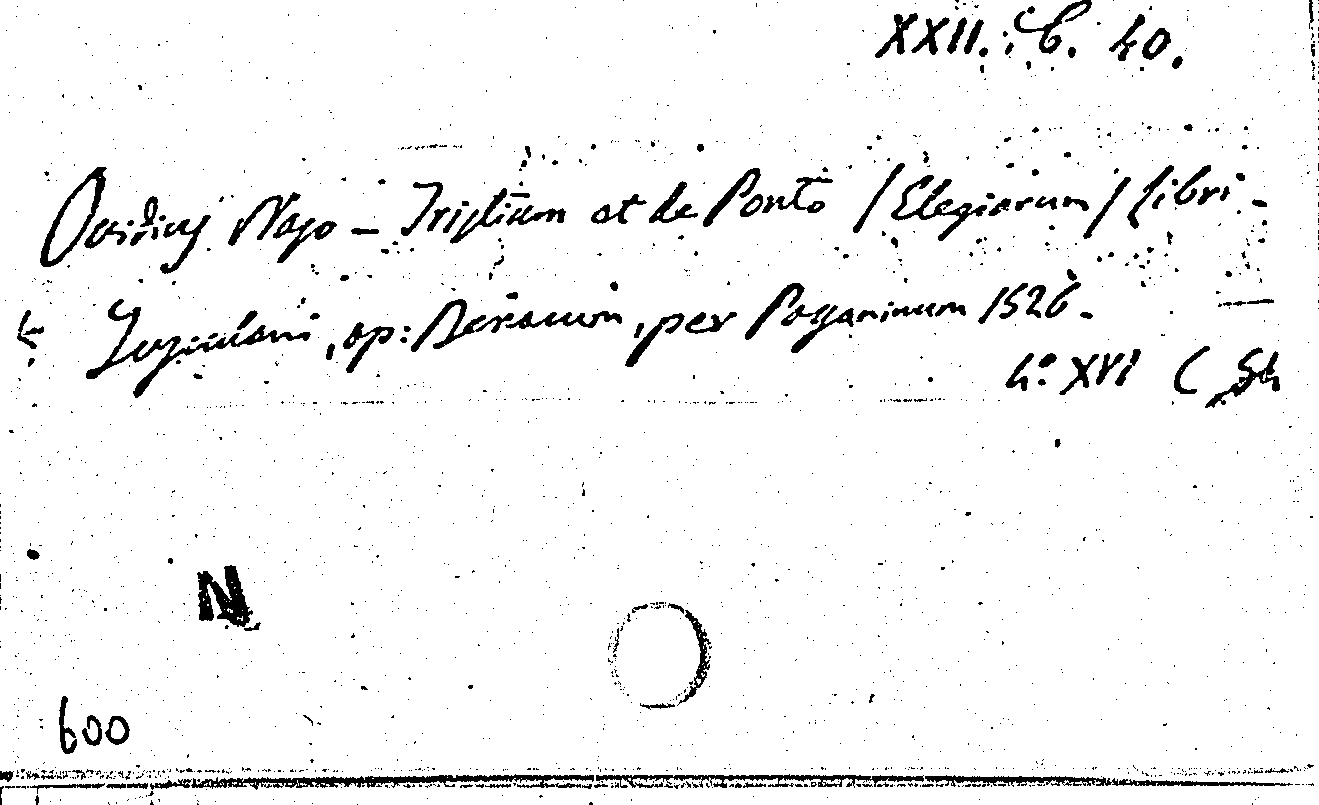 XXII. C. 40.
Ovidius Naso – Tristium et de Ponto /Elegiarum/ Libri –
Tusculani, ap: Benacum, per Paganinum 1526. –
4º XVI C
N
600